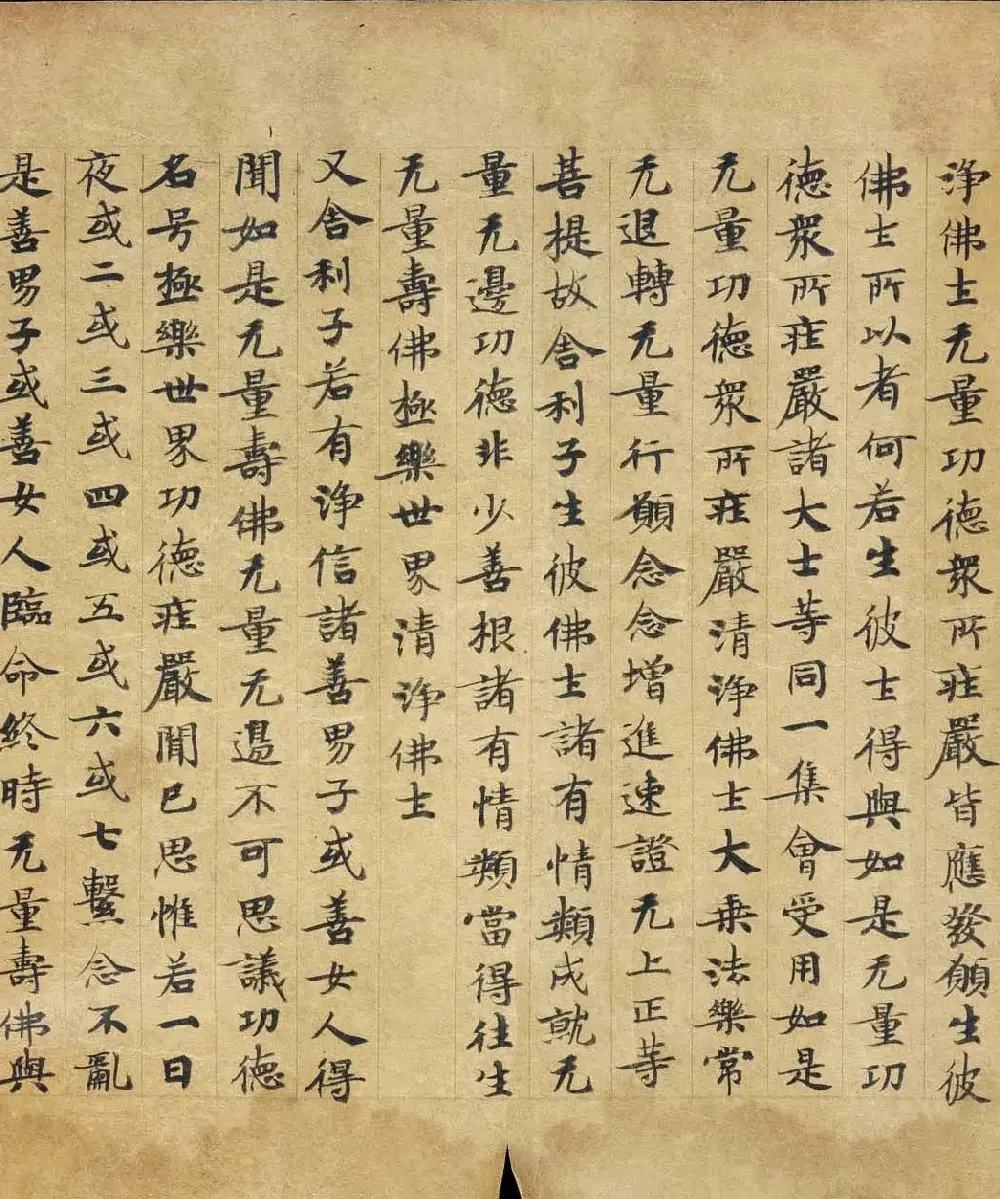 淨佛土无量功德衆所莊嚴皆應發願生彼
佛土所以者何若生彼土得與如是无量功
德衆所莊嚴諸大士等同一集會受用如是
无量功德衆所莊嚴清淨佛土大乘法樂常
无退轉无量行願念念增進速證无上正等
菩提故舍利子生彼佛土諸有情類成就无
量无邊功德非少善根諸有情類當得往生
无量壽佛極樂世界清淨佛土
又舍利子若有淨信諸善男子或善女人得
聞如是无量壽佛无量无邊不可思議功德
名号極樂世界功德莊嚴聞已思惟若一日
夜或二或三或四或五或六或七繫念不亂
是善男子或善女人臨命終時无量壽佛與